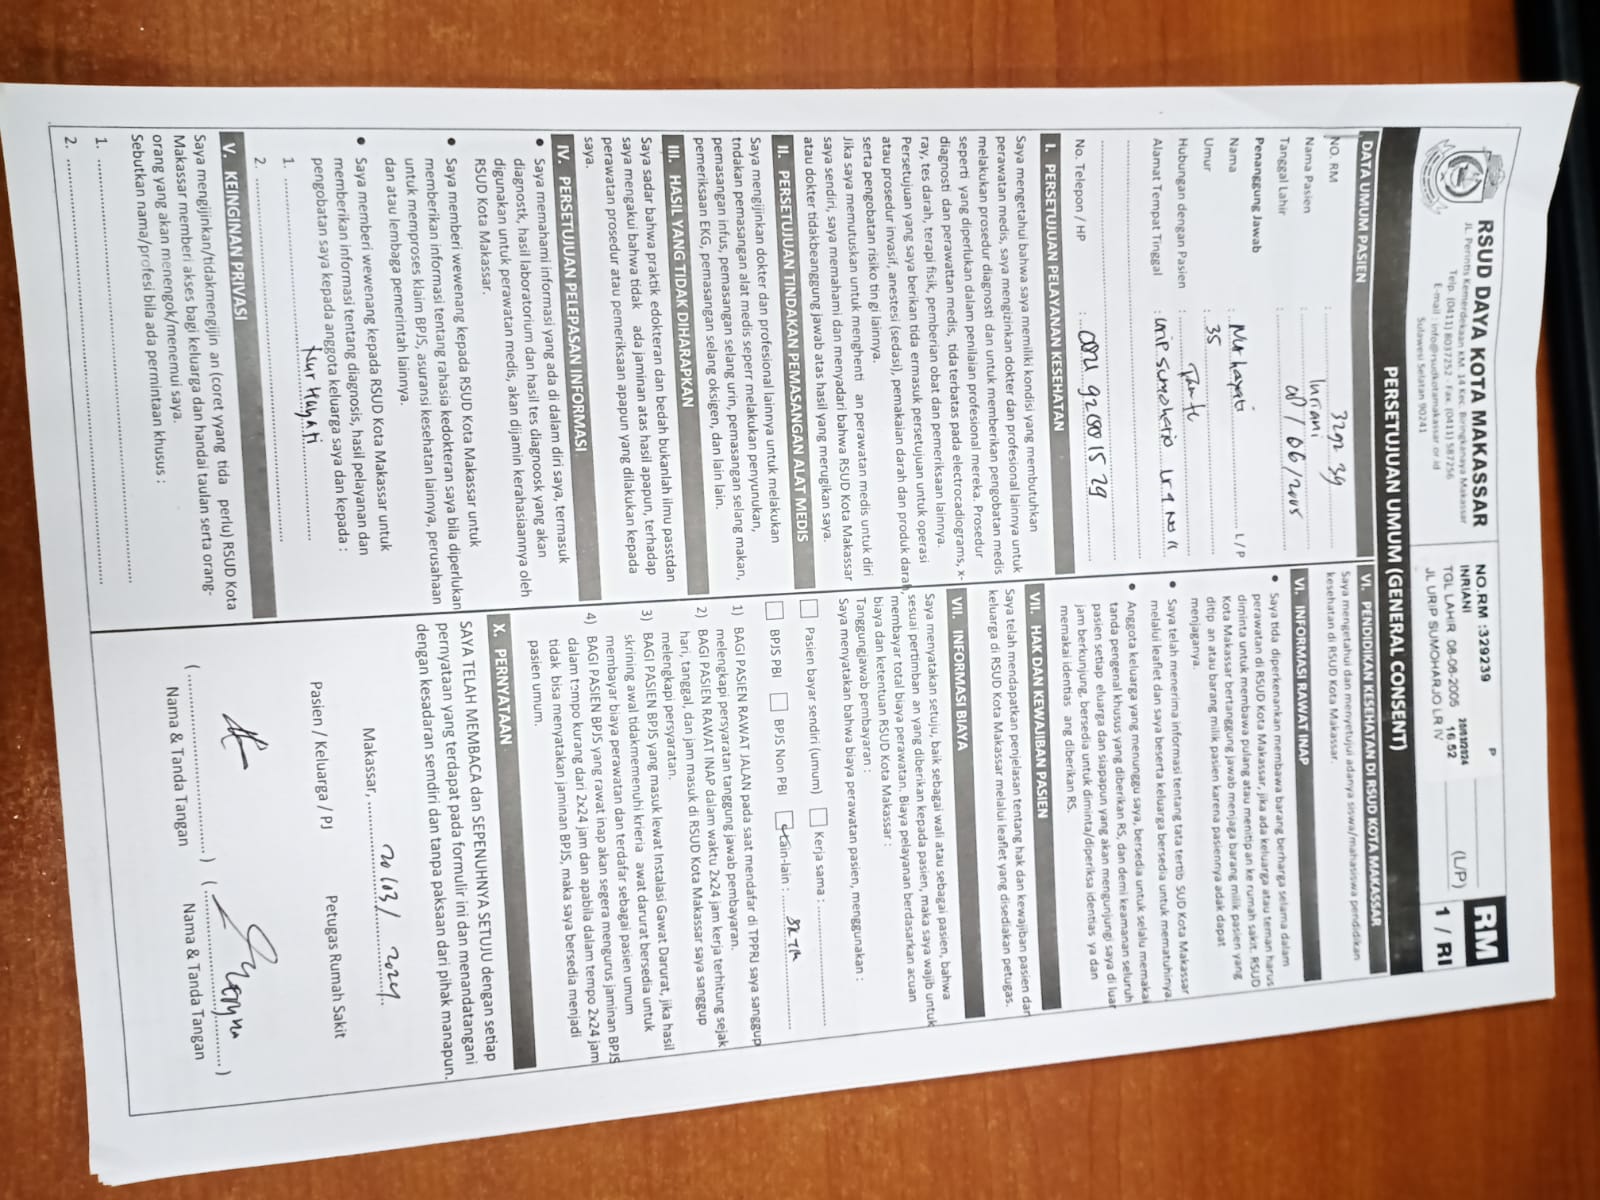 RSUD DAYA KOTA MAKASSAR
JL. Perintis Kemerdekaan KM. 14 Kec. Biringkanaya Makassar
Telp. (0411) 8037252 - Fax. (0411) 587256
E-mail : info@rsudkotamakassar.or.id
Sulawesi Selatan 90241
NO.RM :329239 P
INRIANI 20/03/2024
TGL LAHIR 08-06-2005 16.52
JL URIP SUMOHARJO LR IV
(L/P)
RM
1 / RI
PERSETUJUAN UMUM (GENERAL CONSENT)
DATA UMUM PASIEN
NO. RM : 3292 39
Nama Pasien : Inriani
Tanggal Lahir : 08 / 06 / 2005
Penanggung Jawab
Nama : Nurhayati L / P
Umur : 35
Hubungan dengan Pasien : Tante
Alamat Tempat Tinggal : Urip Sumoharjo Lr 4 No 11
No. Telepon / HP :
I. PERSETUJUAN PELAYANAN KESEHATAN
Saya mengetahui bahwa saya memiliki kondisi yang membutuhkan
perawatan medis, saya mengizinkan dokter dan profesional lainnya untuk
melakukan prosedur diagnosti dan untuk memberikan pengobatan medis
seperti yang diperlukan dalam penilaian profesional mereka. Prosedur
diagnosti dan perawattan medis, tida terbatas pada electrocadiograms, x-
ray, tes darah, terapi fisik, pemberian obat dan pemeriksaan lainnya.
Persetujuan yang saya berikan tida ermasuk persetujuan untuk operasi
atau prosedur invasif, anestesi (sedasi), pemakaian darah dan produk darah,
serta pengobatan risiko tin gi lainnya.
Jika saya memutuskan untuk menghenti an perawatan medis untuk diri
saya sendiri, saya memahami dan menyadari bahwa RSUD Kota Makassar
atau dokter tidakbeanggung jawab atas hasil yang merugikan saya.
II. PERSETUJUAN TINDAKAN PEMASANGAN ALAT MEDIS
Saya mengijinkan dokter dan profesional lainnya untuk melakukan
tndakan pemasangan alat medis seperr melakukan penyunukan,
pemasangan infus, pemasangan selang urin, pemasangan selang makan,
pemeriksaan EKG, pemasangan selang oksigen, dan lain lain.
III. HASIL YANG TIDAK DIHARAPKAN
Saya sadar bahwa praktik edokteran dan bedah bukanlah ilmu passtdan
saya mengakui bahwa tidak ada jaminan atas hasil apapun, terhadap
perawatan prosedur atau pemeriksaan apapun yang dilakukan kepada
saya.
IV. PERSETUJUAN PELEPASAN INFORMASI
• Saya memahami informasi yang ada di dalam diri saya, termasuk
diagnostk, hasil laboratorium dan hasil tes diagnoosk yang akan
digunakan untuk perawatan medis, akan dijamin kerahasiaannya oleh
RSUD Kota Makassar.
• Saya memberi wewenang kepada RSUD Kota Makassar untuk
memberikan informasi tentang rahasia kedokteran saya bila diperlukan
untuk memproses klaim BPJS, asuransi kesehatan lainnya, perusahaan
dan atau lembaga pemerintah lainnya.
• Saya memberi wewenang kepada RSUD Kota Makassar untuk
memberikan informasi tentang diagnosis, hasil pelayanan dan
pengobatan saya kepada anggota keluarga saya dan kepada :
1. Nur Hayati
2.
V. KEINGINAN PRIVASI
Saya mengijinkan/tidakmengijin an (coret yyang tida perlu) RSUD Kota
Makassar memberi akses bagi keluarga dan handai taulan serta orang-
orang yang akan menengok/menemui saya.
Sebutkan nama/profesi bila ada permintaan khusus :
1.
2.
VI. PENDIDIKAN KESEHATAN DI RSUD KOTA MAKASSAR
Saya mengetahui dan menyetujui adanya siswa/mahasiswa pendidikan
kesehatan di RSUD Kota Makassar.
VI. INFORMASI RAWAT INAP
• Saya tida diperkenankan membawa barang berharga selama dalam
perawatan di RSUD Kota Makassar, jika ada keluarga atau teman harus
diminta untuk membawa pulang atau menitip an ke rumah sakit. RSUD
Kota Makassar bertanggung jawab menjaga barang milik pasien yang
ditip an atau barang milik pasien karena pasiennya adak dapat
menjaganya.
• Saya telah menerima informasi tentang tata tertib SUD Kota Makassar
melalui leaflet dan saya beserta keluarga bersedia untuk mematuhinya.
• Anggota keluarga yang menunggu saya, bersedia untuk selalu memakai
tanda pengenal khusus yang diberikan RS, dan demi keamanan seluruh
pasien setiap eluarga dan siapapun yang akan mengunjungi saya di luar
jam berkunjung, bersedia untuk diminta/diperiksa identias ya dan
memakai identias ang diberikan RS.
VII. HAK DAN KEWAJIBAN PASIEN
Saya telah mendapatkan penjelasan tentang hak dan kewajiban pasien dan
keluarga di RSUD Kota Makassar melalui leaflet yang disediakan petugas.
VII. INFORMASI BIAYA
Saya menyatakan setuju, baik sebagai wali atau sebagai pasien, bahwa
sesuai pertimban an yang diberikan kepada pasien, maka saya wajib untuk
membayar total biaya perawatan. Biaya pelayanan berdasarkan acuan
biaya dan ketentuan RSUD Kota Makassar :
Tanggungjawab pembayaran :
Saya menyatakan bahwa biaya perawatan pasien, menggunakan :
Pasien bayar sendiri (umum) Kerja sama :
BPJS PBI BPJS Non PBI Lain-lain : SKTM
1) BAGI PASIEN RAWAT JALAN pada saat mendafar di TPPRJ saya sanggup
melengkapi persyaratan tanggung jawab pembayaran.
2) BAGI PASIEN RAWAT INAP dalam waktu 2x24 jam kerja terhitung sejak
hari, tanggal, dan jam masuk di RSUD Kota Makassar saya sanggup
melengkapi persyaratan.
3) BAGI PASIEN BPJS yang masuk lewat Instalasi Gawat Darurat, jika hasil
skrining awal tidakmemenuhi krieria awat darurat bersedia untuk
membayar biaya perawatan dan terdafar sebagai pasien umum
4) BAGI PASIEN BPJS yang rawat inap akan segera mengurus jaminan BPJS
dalam tempo kurang dari 2x24 jam dan apabila dalam tempo 2x24 jam
tidak bisa menyatakan jaminan BPJS, maka saya bersedia menjadi
pasien umum.
X. PERNYATAAN
SAYA TELAH MEMBACA dan SEPENUHNYA SETUJU dengan setiap
pernyataan yang terdapat pada formulir ini dan menandatangani
dengan kesadaran semdiri dan tanpa paksaan dari pihak manapun.
Makassar, 20/03/ 2024
Pasien / Keluarga / PJ Petugas Rumah Sakit
( ) ( )
Nama & Tanda Tangan Nama & Tanda Tangan